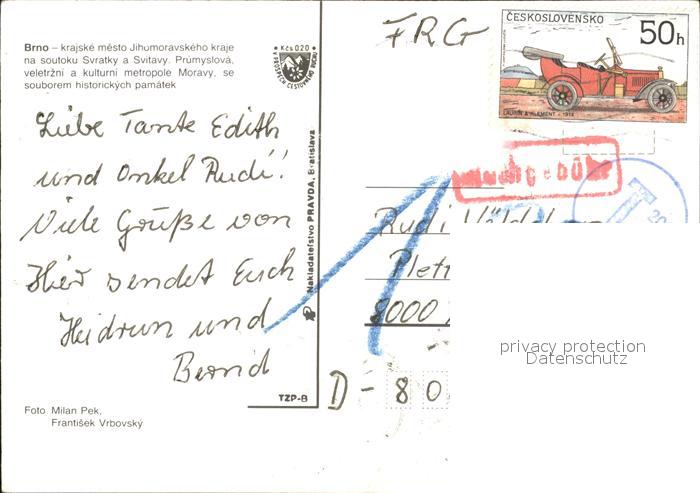 Brno – krajské město Jihomoravského kraje
na soutoku Svratky a Svitavy. Průmyslová,
veletržní a kulturní metropole Moravy, se
souborem historických památek
Kčs 0,20
Liebe Tante Edith
und Onkel Rudi!
Viele Grüße von
Hier sendet Euch
Heidrun und
Bernd
Foto Milan Pek,
František Vrbovský
TZP-B
Nakladateľstvo PRAVDA, Bratislava
FRG
ČESKOSLOVENSKO
50h
LAURIN & KLEMENT - 1914
Nachgebühr
Rudi
Plet
8000
D - 80
privacy protection
Datenschutz